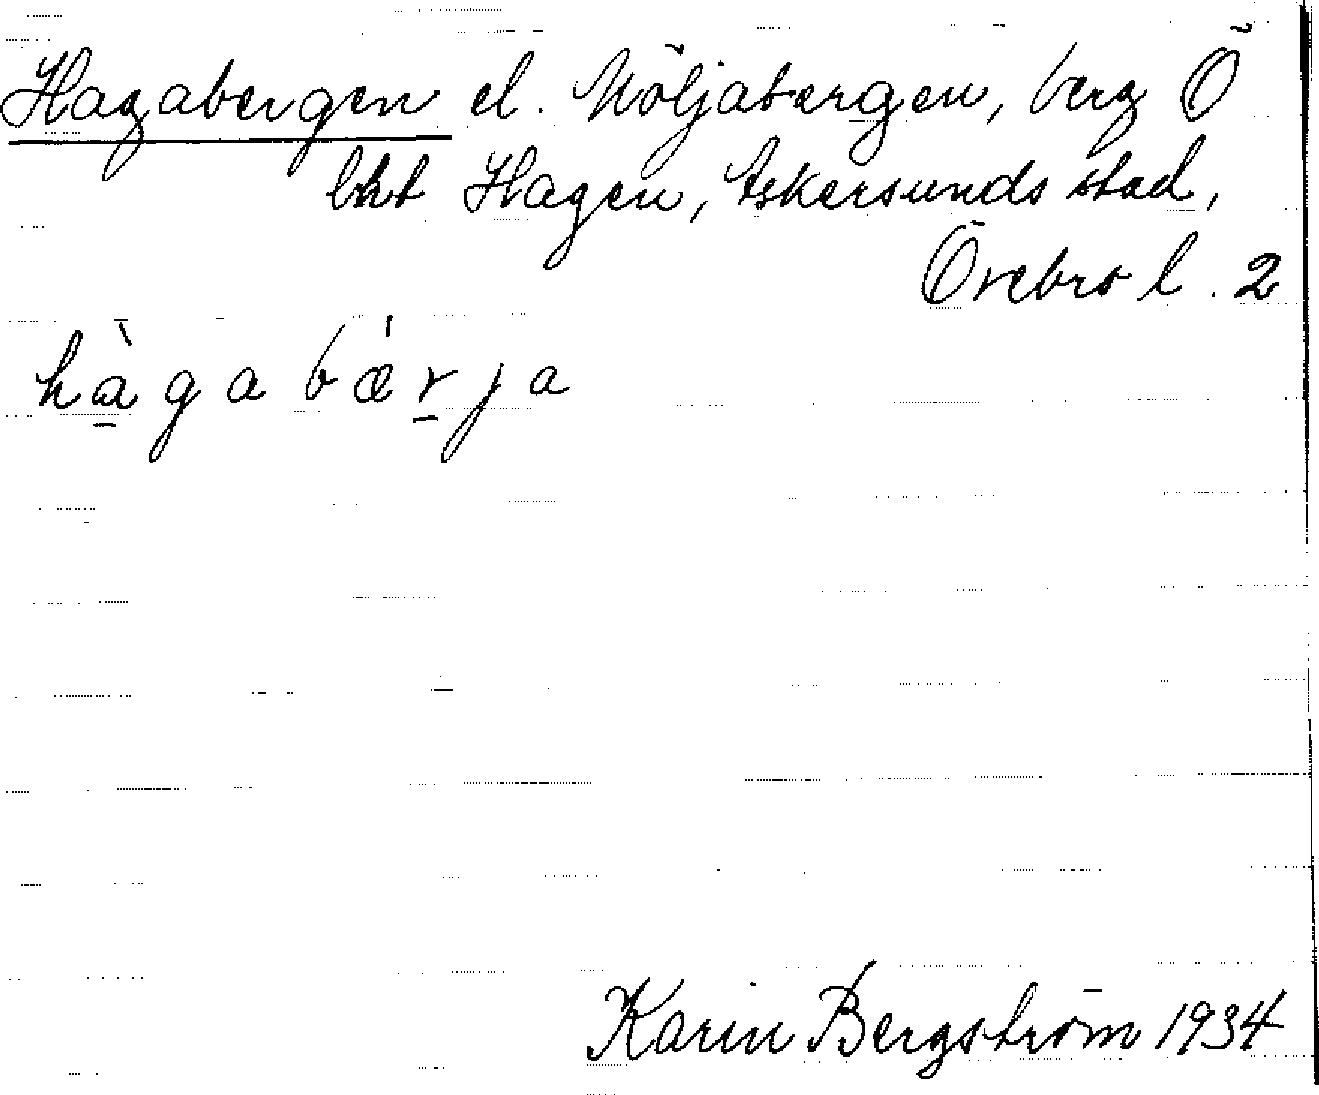 Hagabergen el. Möljabergen, berg Ö
lht Hagen, Askersunds stad,
Örebro l. 2
hàgabǽrja
Karin Bergström 1934